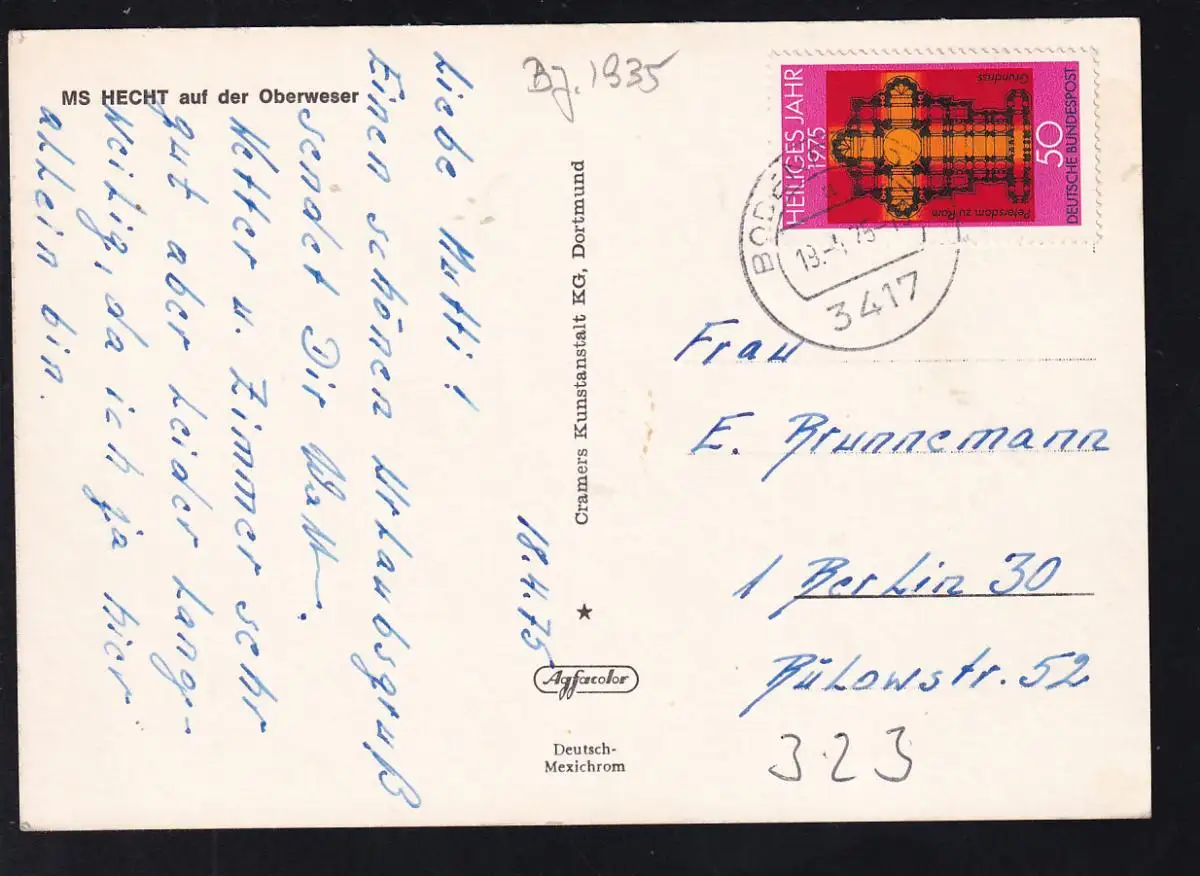 MS HECHT auf der Oberweser
Bj. 1935
18.4.75
Liebe Mutti!
Einen schönen Urlaubsgruß
sendet Dir Walt.
Wetter u. Zimmer sehr
gut aber leider lang-
weilig, da ich ja hier
allein bin.
Cramers Kunstanstalt KG, Dortmund
Agfacolor
Deutsch-
Mexichrom
HEILIGES JAHR
1975
Grundriss
Petersdom zu Rom
50
DEUTSCHE BUNDESPOST
3417
Frau
E. Brunnemann
1 Berlin 30
Bülowstr. 52
323